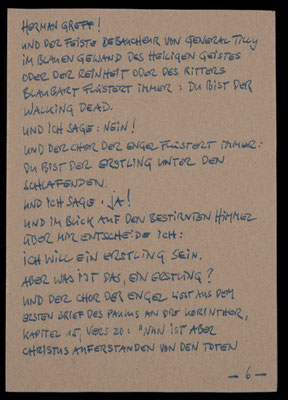 HERMAN GREFF!
UND DER FEISTE DEBAUCHEUR VON GENERAL TILLY
IM BLAUEN GEWAND DES HEILIGEN GEISTES
ODER DER REINHEIT ODER DES RITTERS
BLAUBART FLÜSTERT IMMER: DU BIST DER
WALKING DEAD.
UND ICH SAGE: NEIN!
UND DER CHOR DER ENGEL FLÜSTERT IMMER:
DU BIST DER ERSTLING UNTER DEN
SCHLAFENDEN.
UND ICH SAGE: JA!
UND IM BLICK AUF DEN BESTIRNTEN HIMMEL
ÜBER MIR ENTSCHEIDE ICH:
ICH WILL EIN ERSTLING SEIN.
ABER WAS IST DAS, EIN ERSTLING?
UND DER CHOR DER ENGEL LIEST AUS DEM
ERSTEN BRIEF DES PAULUS AN DIE KORINTHER,
KAPITEL 15, VERS 20: "NUN IST ABER
CHRISTUS AUFERSTANDEN VON DEN TOTEN
– 6 –